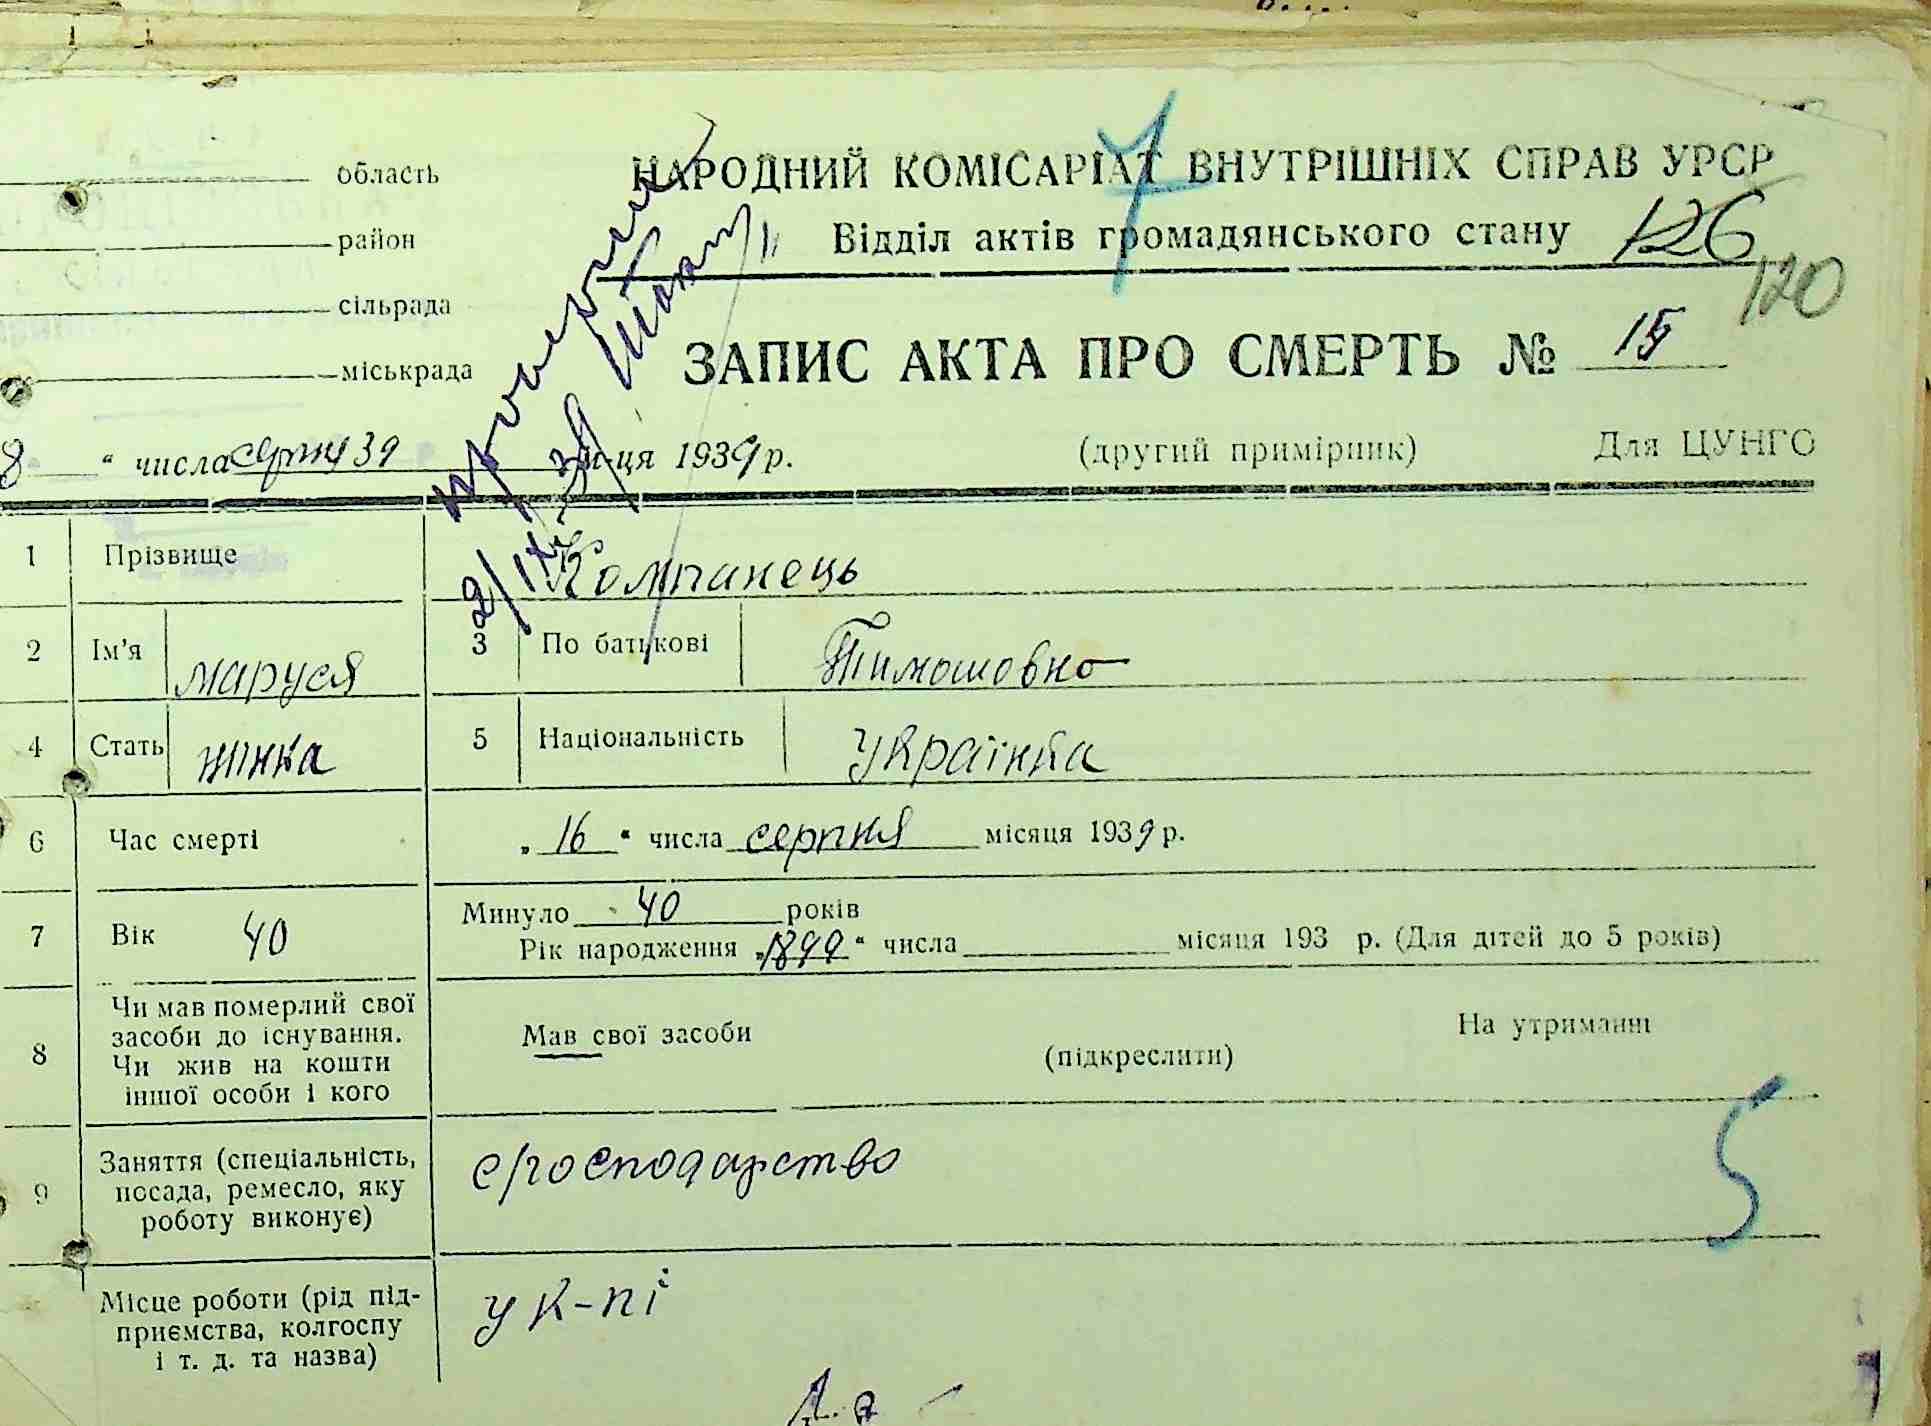 область
район
сільрада
міськрада
НАРОДНИЙ КОМІСАРІАТ ВНУТРІШНІХ СПРАВ УРСР
7
Відділ актів громадянського стану
126
120
ЗАПИС АКТА ПРО СМЕРТЬ № 15
8 " числа серпня 39 м-ця 1939 р. (другий примірник) Для ЦУНГО
1 Прізвище Компанець
2 Ім'я маруся 3 По батькові Тимошовна
4 Стать жінка 5 Національність українка
6 Час смерті „ 16 " числа серпня місяця 1939 р.
7 Вік 40 Минуло 40 років
Рік народження „1899" числа місяця 193 р. (Для дітей до 5 років)
8 Чи мав померлий свої
засоби до існування.
Чи жив на кошти
іншої особи і кого
Мав свої засоби (підкреслити) На утриманні
5
9 Заняття (спеціальність,
посада, ремесло, яку
роботу виконує)
с/господарство
Місце роботи (рід під-
приємства, колгоспу
і т. д. та назва)
у к-пі